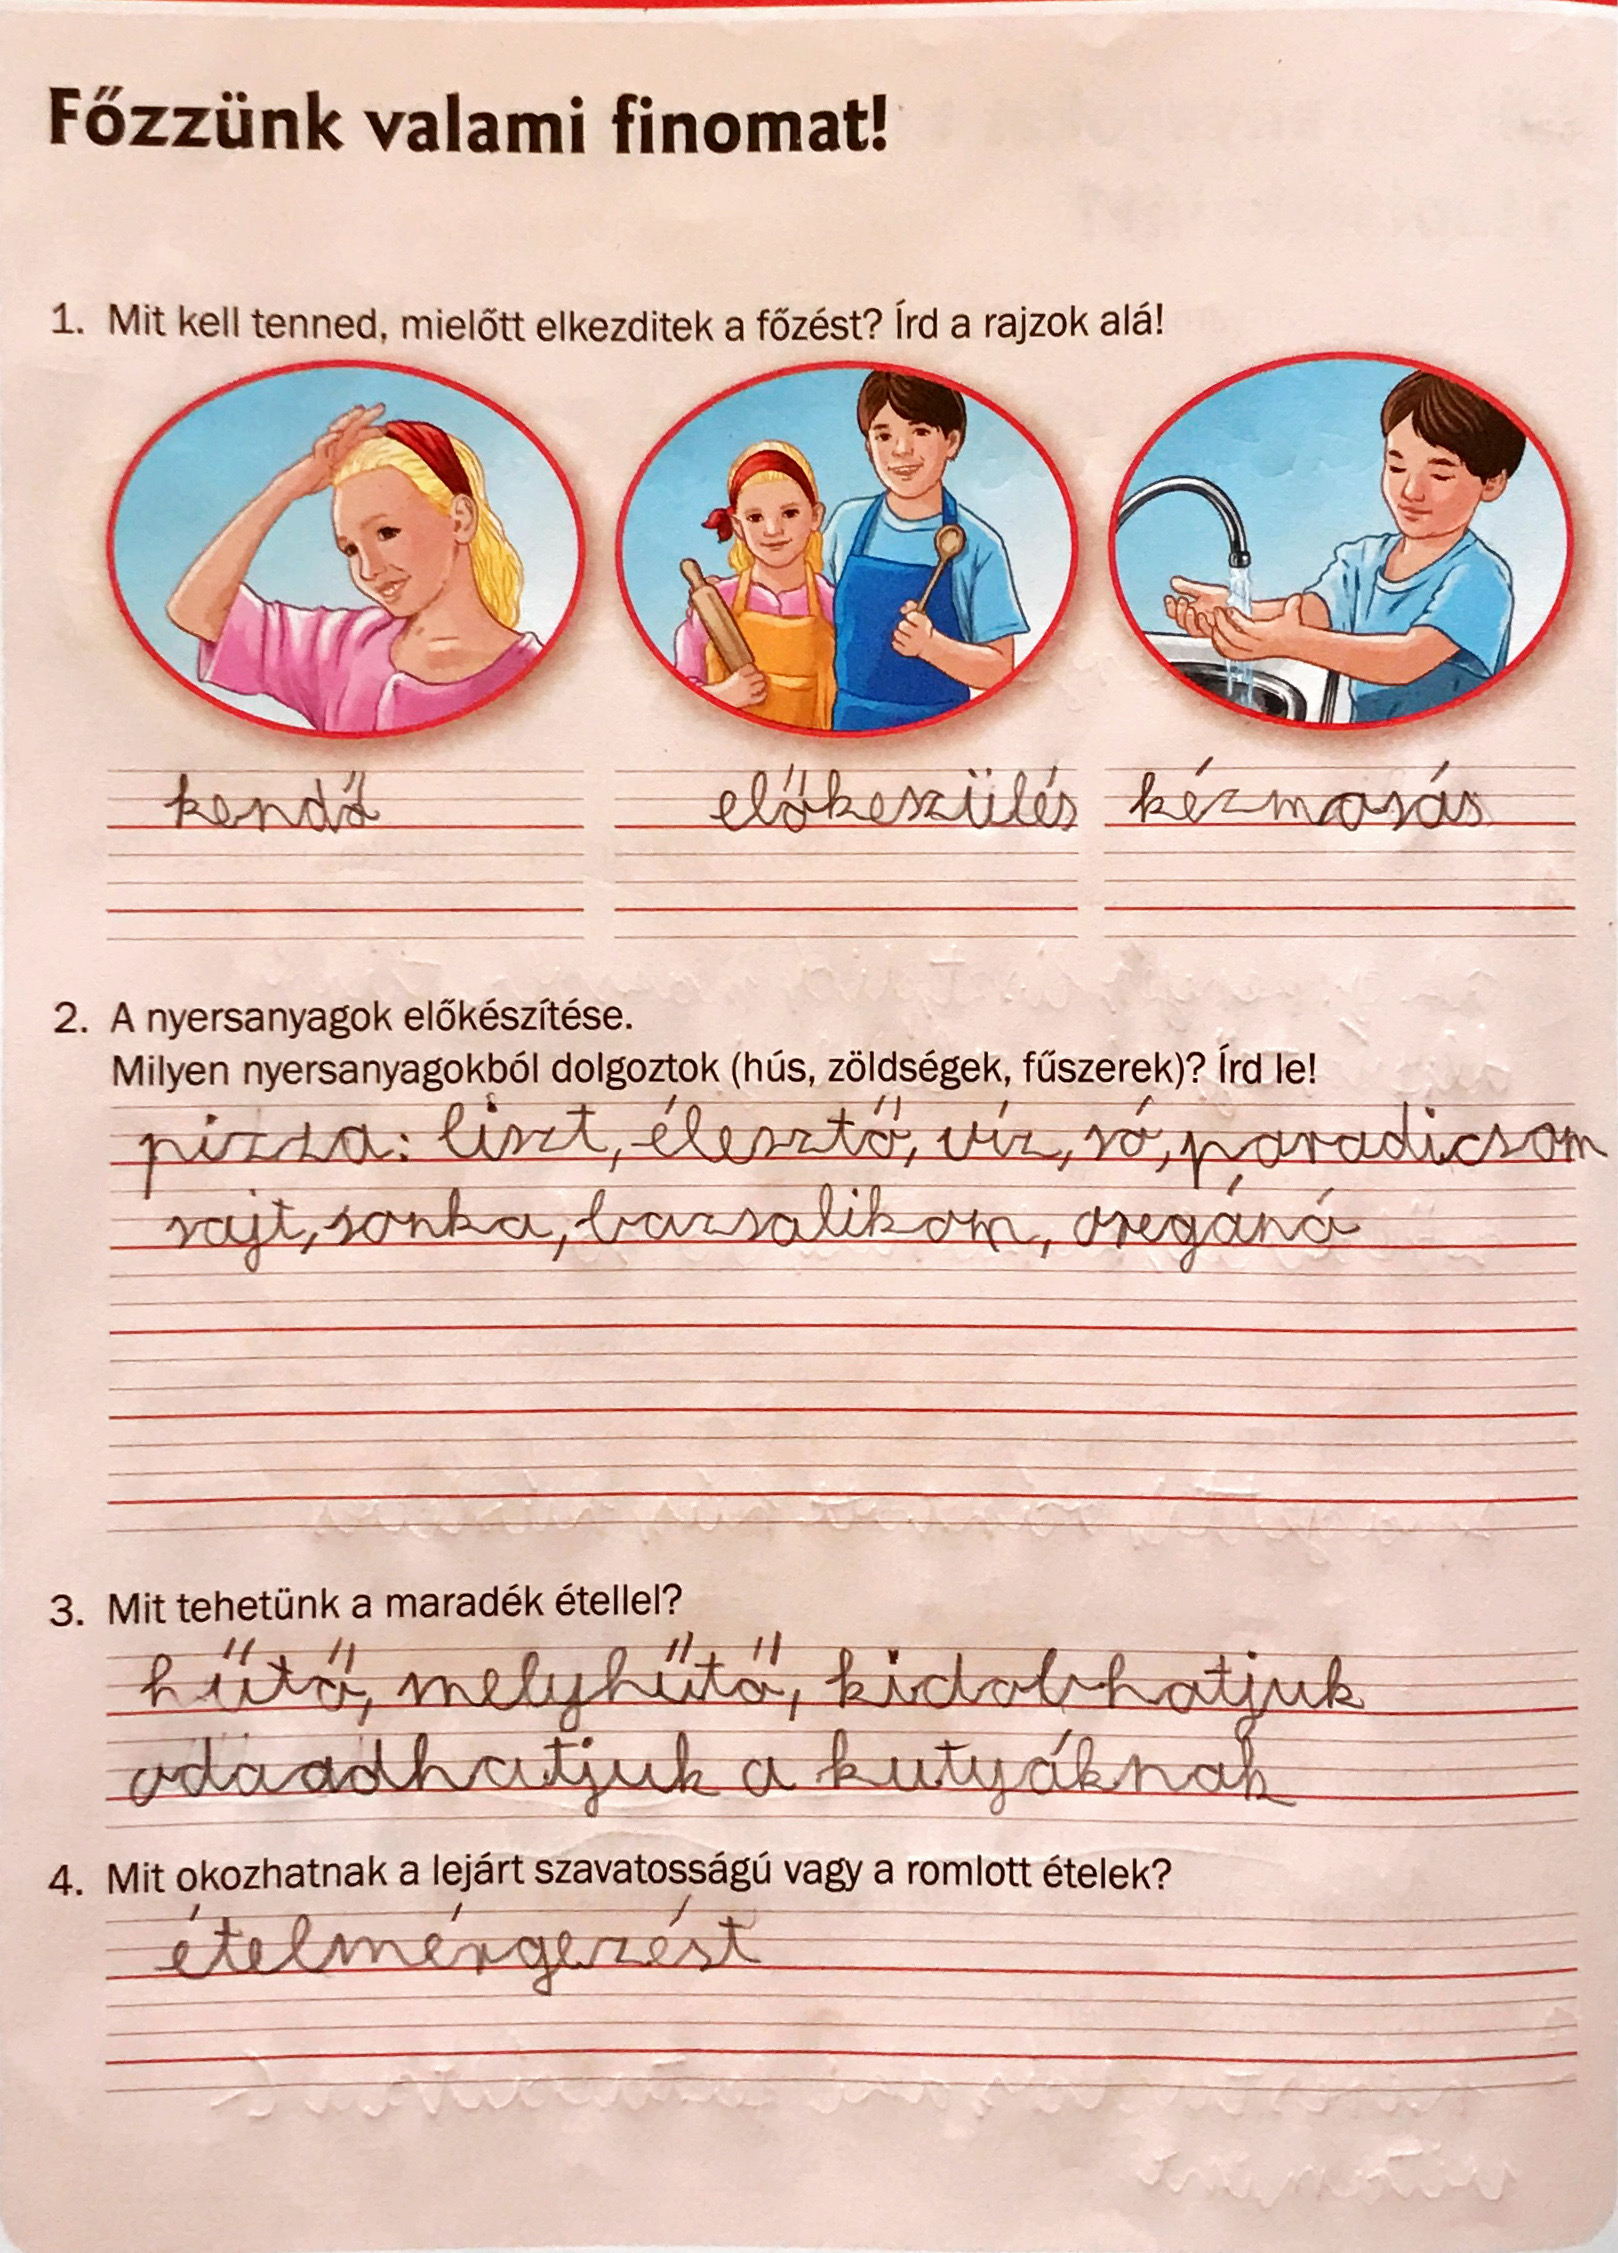 Főzzünk valami finomat!
1. Mit kell tenned, mielőtt elkezditek a főzést? Írd a rajzok alá!
kendő előkeszülés kézmosás
2. A nyersanyagok előkészítése.
Milyen nyersanyagokból dolgoztok (hús, zöldségek, fűszerek)? Írd le!
pizza: liszt, élesztő, víz, só, paradicsom
sajt, sonka, bazsalikom, oregánó
3. Mit tehetünk a maradék étellel?
hűtő, melyhűtő, kidobhatjuk
odaadhatjuk a kutyáknak
4. Mit okozhatnak a lejárt szavatosságú vagy a romlott ételek?
ételmérgezést